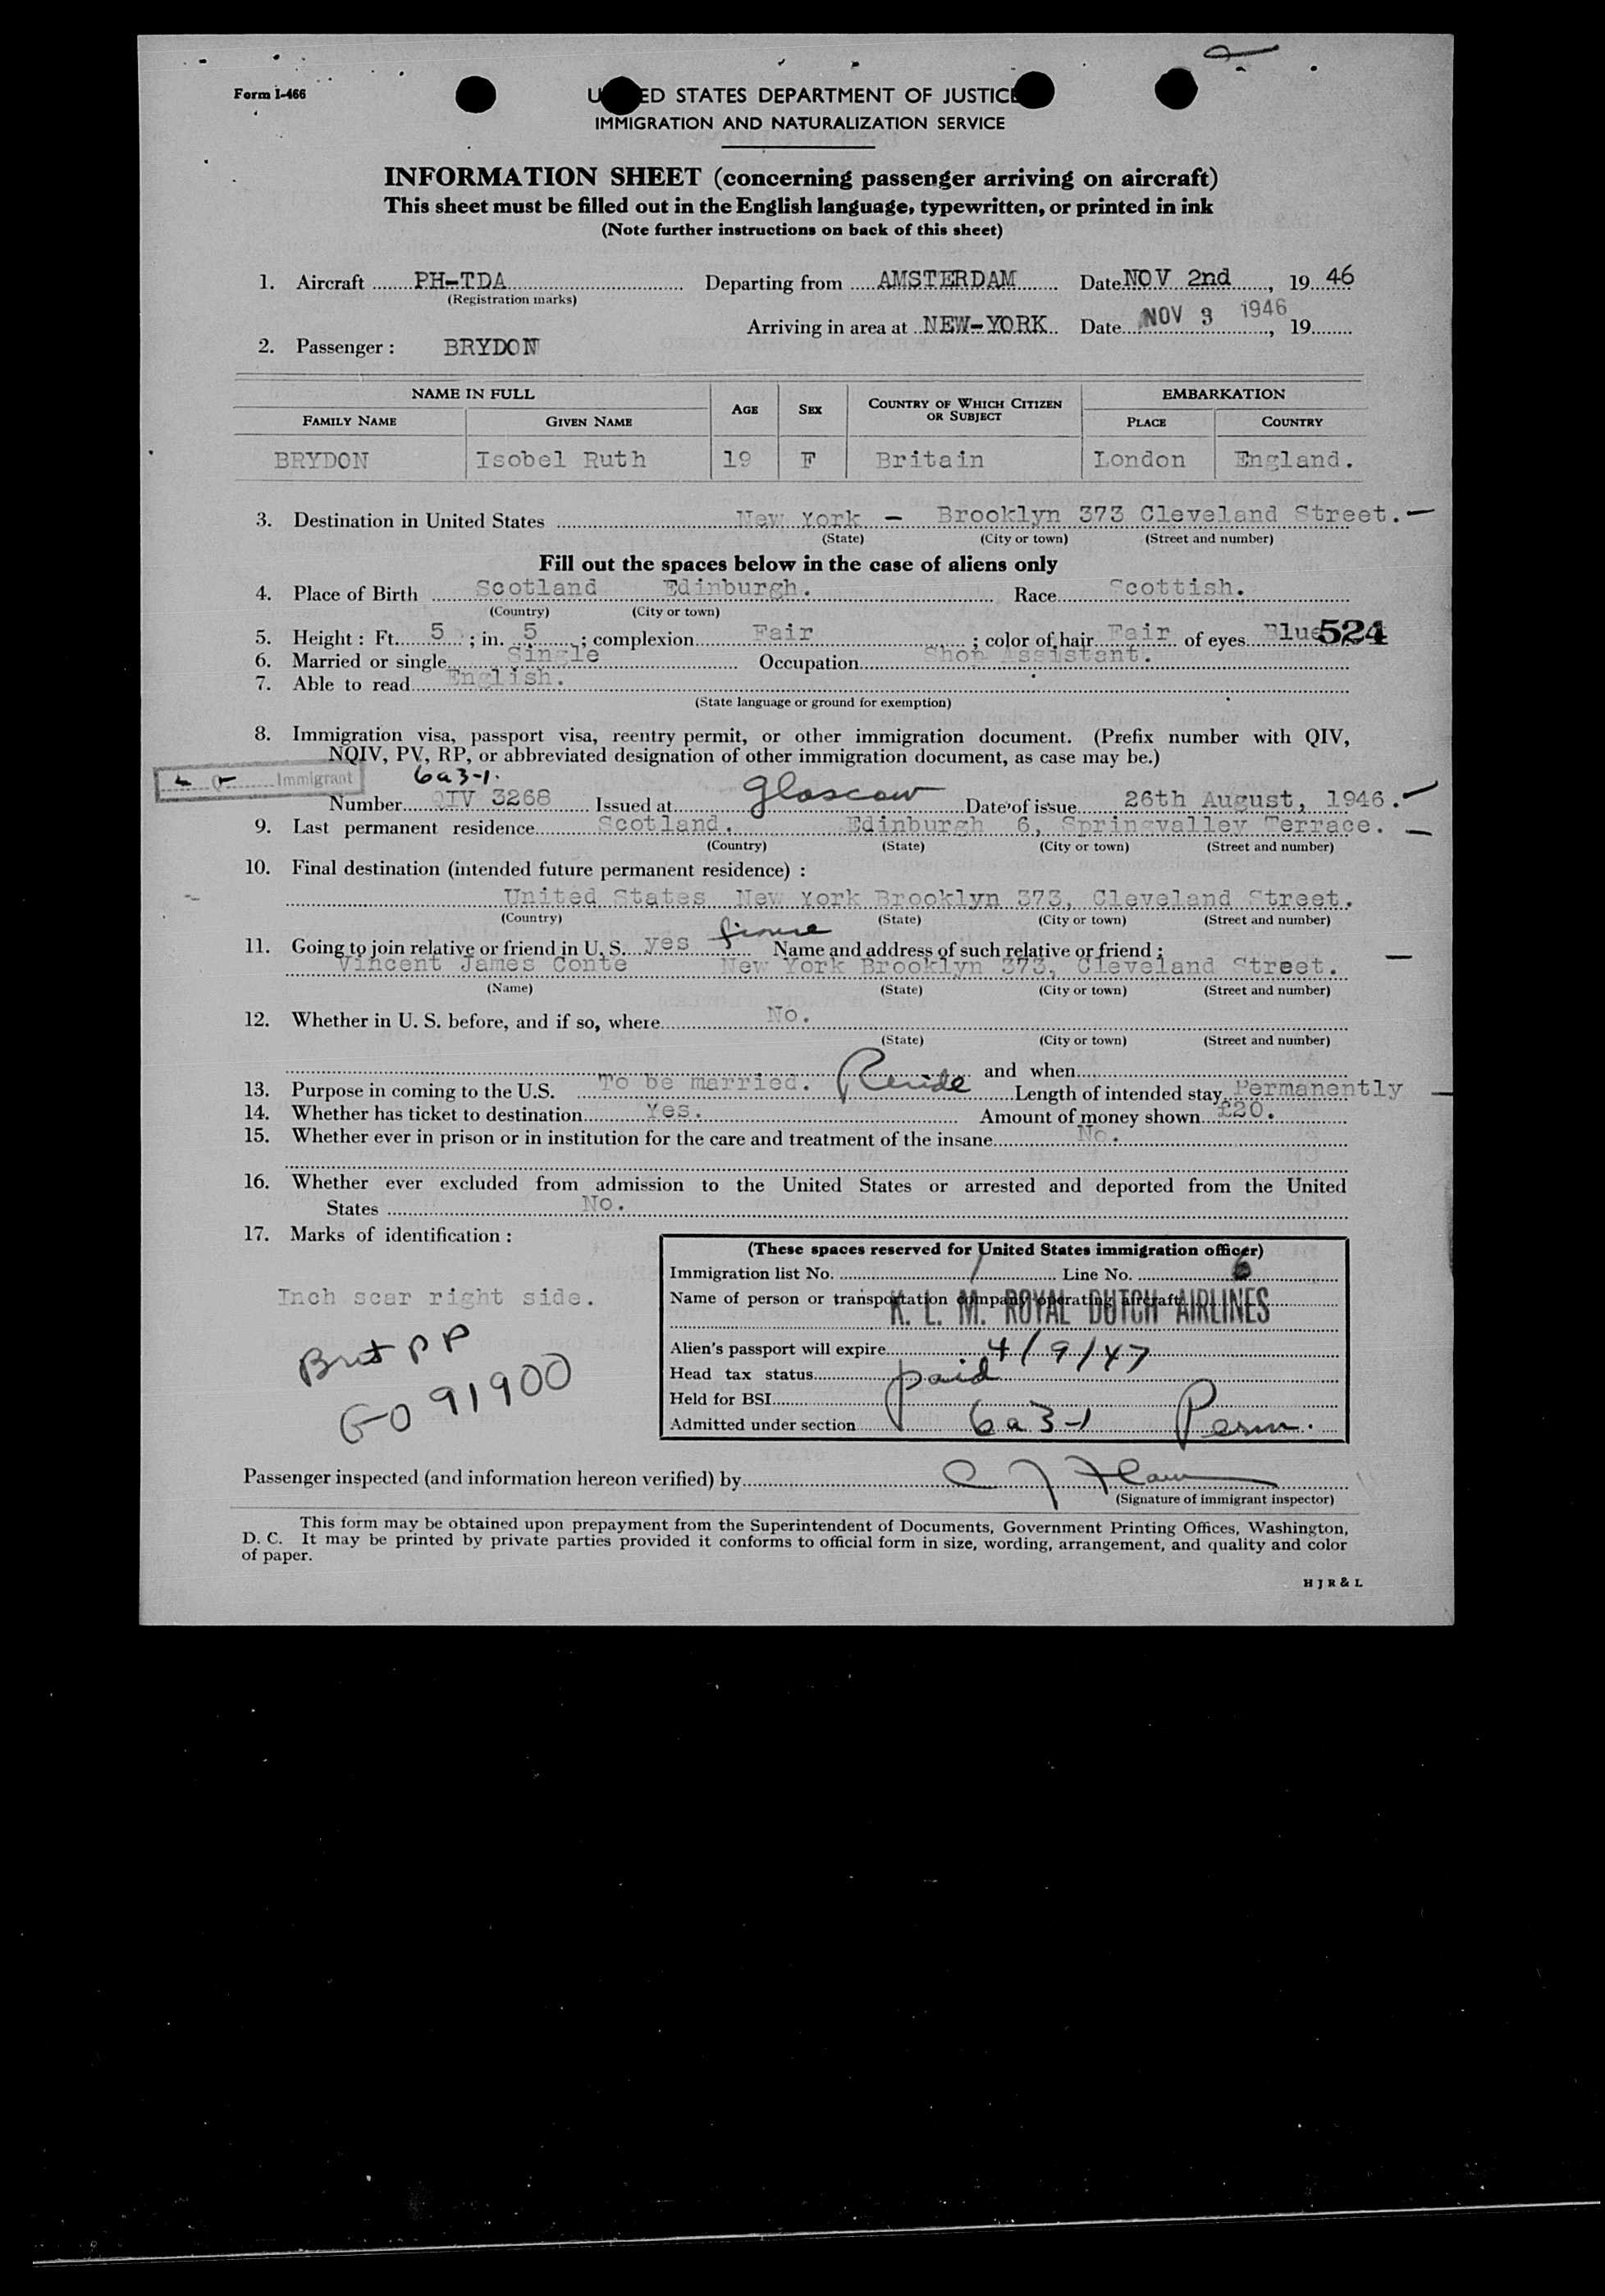 Form I-466
U ED STATES DEPARTMENT OF JUSTICE
IMMIGRATION AND NATURALIZATION SERVICE
INFORMATION SHEET (concerning passenger arriving on aircraft)
This sheet must be filled out in the English language, typewritten, or printed in ink
(Note further instructions on back of this sheet)
1. Aircraft PH-TDA Departing from AMSTERDAM Date NOV 2nd, 19 46
(Registration marks)
Arriving in area at NEW-YORK Date NOV 3 1946, 19
2. Passenger: BRYDON
NAME IN FULL AGE SEX COUNTRY OF WHICH CITIZEN OR SUBJECT EMBARKATION
FAMILY NAME GIVEN NAME PLACE COUNTRY
BRYDON Isobel Ruth 19 F Britain London England.
3. Destination in United States New York - Brooklyn 373 Cleveland Street.
(State) (City or town) (Street and number)
Fill out the spaces below in the case of aliens only
4. Place of Birth Scotland Edinburgh. Race Scottish.
(Country) (City or town)
5. Height: Ft. 5; in. 5; complexion Fair; color of hair Fair of eyes Blue 524
6. Married or single Single Occupation Shop Assistant.
7. Able to read English.
(State language or ground for exemption)
8. Immigration visa, passport visa, reentry permit, or other immigration document. (Prefix number with QIV,
NQIV, PV, RP, or abbreviated designation of other immigration document, as case may be.)
Q Immigrant 6a3-1.
Number QIV 3268 Issued at Glascow Date of issue 26th August, 1946.
9. Last permanent residence Scotland. Edinburgh 6, Springvalley Terrace.
(Country) (State) (City or town) (Street and number)
10. Final destination (intended future permanent residence):
United States New York Brooklyn 373, Cleveland Street.
(Country) (State) (City or town) (Street and number)
11. Going to join relative or friend in U. S. yes Name and address of such relative or friend:
Vincent James Conte New York Brooklyn 373, Cleveland Street.
(Name) (State) (City or town) (Street and number)
12. Whether in U. S. before, and if so, where No.
(State) (City or town) (Street and number)
and when
13. Purpose in coming to the U.S. To be married. Reside Length of intended stay Permanently
14. Whether has ticket to destination Yes. Amount of money shown £20.
15. Whether ever in prison or in institution for the care and treatment of the insane No.
16. Whether ever excluded from admission to the United States or arrested and deported from the United
States No.
17. Marks of identification:
Inch scar right side.
Brit PP
GO 91900
(These spaces reserved for United States immigration officer)
Immigration list No. 1 Line No. 6
Name of person or transportation company operating aircraft
K. L. M. ROYAL DUTCH AIRLINES
Alien's passport will expire 4/9/47
Head tax status paid
Held for BSI
Admitted under section 6a3-1 Perm.
Passenger inspected (and information hereon verified) by
(Signature of immigrant inspector)
This form may be obtained upon prepayment from the Superintendent of Documents, Government Printing Offices, Washington,
D. C. It may be printed by private parties provided it conforms to official form in size, wording, arrangement, and quality and color
of paper.
H J R & L